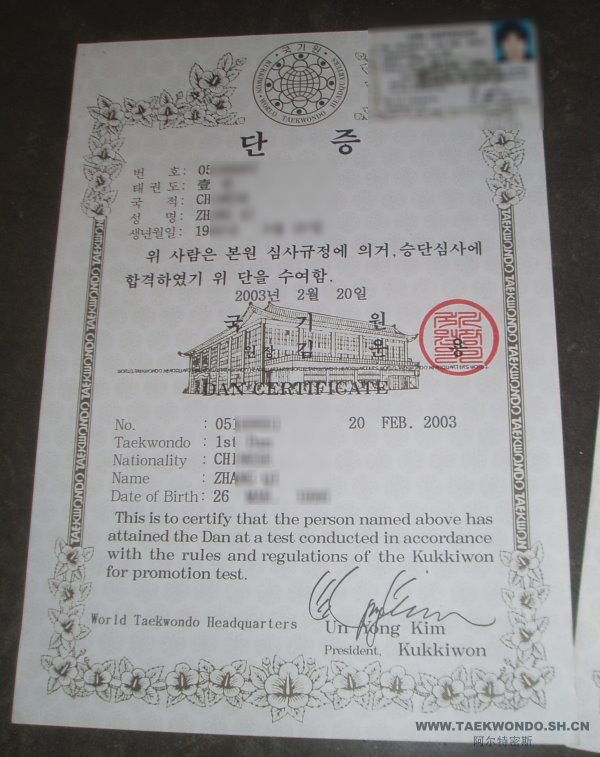 국기원
KUKKIWON · WORLD TAEKWONDO HEADQUARTERS
단 증
번 호: 05
태권도: 壹
국 적: CH
성 명: ZH
생년월일: 19
위 사람은 본원 심사규정에 의거, 승단심사에
합격하였기 위 단을 수여함.
2003년 2월 20일
국 기 원
원장 김 운 용
DAN CERTIFICATE
No. : 05 20 FEB. 2003
Taekwondo : 1st
Nationality : CHI
Name : ZHA
Date of Birth: 26
This is to certify that the person named above has
attained the Dan at a test conducted in accordance
with the rules and regulations of the Kukkiwon
for promotion test.
World Taekwondo Headquarters
Un Yong Kim
President, Kukkiwon
TAEKWONDO TAEKWONDO TAEKWONDO TAEKWONDO
TAEKWONDO TAEKWONDO TAEKWONDO TAEKWONDO
WWW.TAEKWONDO.SH.CN
阿尔特密斯